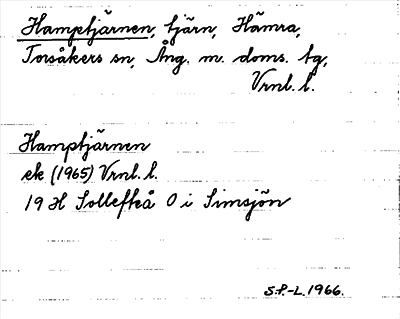 Hamptjärnen, tjärn, Hämra,
Torsåkers sn, Ång. m. doms. tg,
Vrnl. l.
Hamptjärnen
ek (1965) Vrnl. l.
19 H Sollefteå O i Simsjön
S.P.-L. 1966.